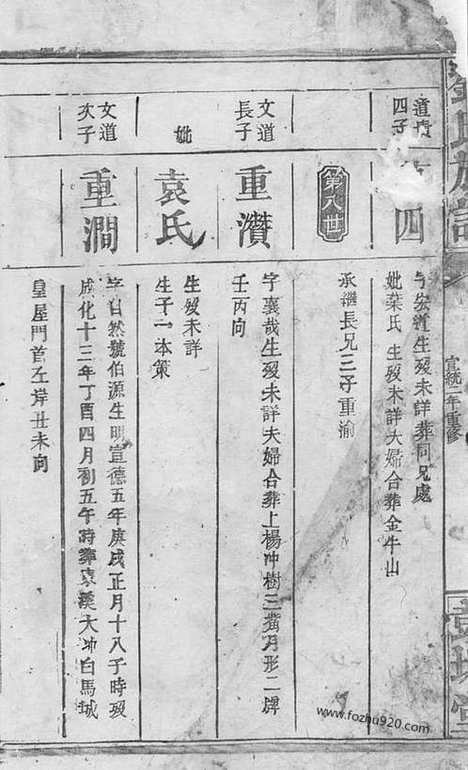 氏族譜
宣統二年重修
堂
道
四子
四
字安
生歿未詳葬同兄處
妣葉氏生歿未詳夫婦合葬金牛山
承繼長兄三子重渝
第八世
文道
長子
重瓚
字襄哉生歿未詳夫婦合葬上楊冲樹三嘴月形二牌
壬丙向
妣
袁氏
生歿未詳
生子一本策
文道
次子
重澗
字自然號伯源生明宣德五年庚戌正月十八子時歿
成化十三年丁酉四月初五午時葬袁溪大冲白馬城
皇屋門首左岸丑未向
www.fozhu920.com